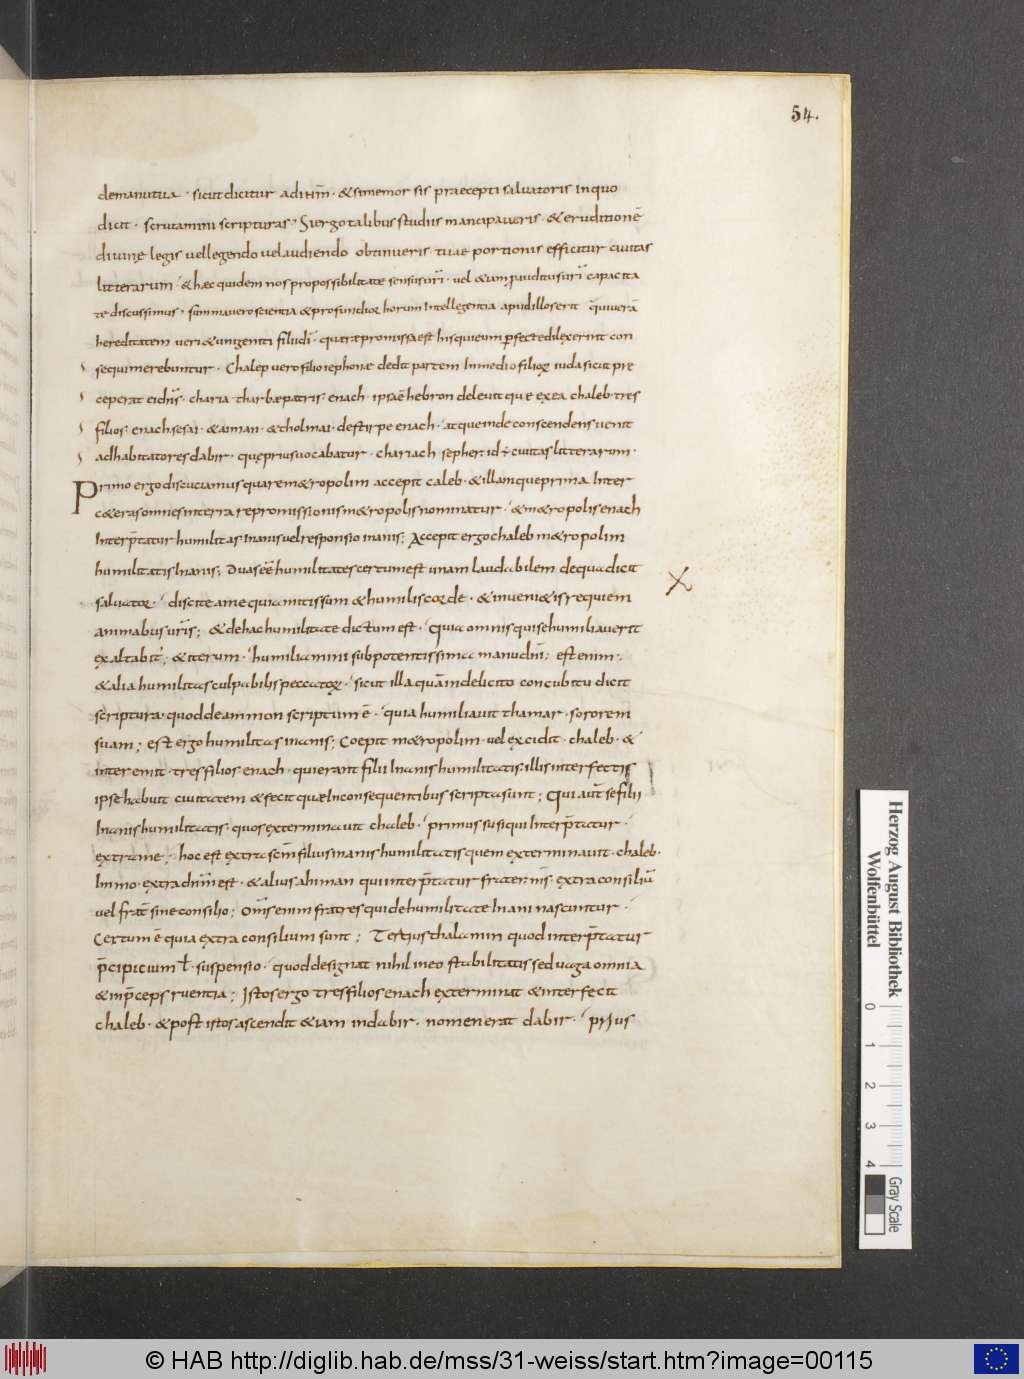 54.
demanu tua · sicut dicitur ad tim̄ · & si memor sis praecepti salvatoris in quo
dicit · scrutamini scripturas · Si ergo talibus studiis mancipaveris · & eruditionē
divinę legis vel legendo vel audiendo obtinueris · tuae portionis efficitur civitas
litterarum · & haec quidem nos pro possibilitate sensus nr̄i · vel etiam auditus ur̄i capacita
te discussimus · summa vero scientia & profundior horum Intellegentia apud illos erit
hereditatem veri & unigeniti filii dī · quae repromissa est his qui eum perfecte dilexerint con
sequi merebuntur · Chaleb vero filio iephonae dedit partem In medio filiorum iuda sicut prę
ceperat ei dn̄s · chariatharbae patris enach · ipsa ē hebron delevit que ex ea chaleb · tres
filios · enach · sesai · & aiman · & tholmai · de stirpe enach · atque inde conscendens venit
ad habitatores dabir · quę prius vocabatur · chariath sepher id ÷ civitas litterarum ·
Primo ergo discutiamus quare m&ropolim accepit caleb · & illam que prima Inter
c&eras omnes in terra repromissionis m&ropolis nominatur · & m&ropolis enach
Interp̄tatur humilitas Inanis vel responsio inanis; Accepit ergo chaleb m&ropolim
humilitatis Inanis; Duas eē humilitates certum est unam laudabilem de qua dicit
salvator · discite a me quia mitis sum & humilis corde · & inveni&is requiem
animabus vr̄is; & de hac humilitate dictum est · Quia omnis qui se humiliaverit
exaltabit̄; & iterum · humiliamini sub potentissima manu dn̄i; est enim ·
& alia humilitas culpabilis peccatorum · sicut illa quā in delicto concubitu dicit
scriptura · quod de ammon scriptum ē · quia humiliavit thamar · sororem
suam; est ergo humilitas inanis; Coepit m&ropolim · vel excidit · chaleb · &
interemit · tres filios · enach · qui erant filii Inanis humilitatis · illis interfectis
ipse habuit civitatem & fecit quae In consequentibus scripta sunt; Qui aut̄ se filii
Inanis humilitatis · quos exterminavit chaleb · primus susi qui Interp̄tatur ·
extra me; hoc est extra sc̄m filius inanis humilitatis quem exterminavit · chaleb ·
Immo · extra dn̄m est · & alius ahiman qui interp̄tatur frater m̄s · extra consiliū
vel frat̄ sine consilio; Om̄s enim fratres qui de humilitate Inani nascuntur ·
Certum ē quia extra consilium sunt; Tertius thalamin quod interp̄tatur
p̄cipitium ł · suspensio · quod designat nihil in eo stabilitatis sed vaga omnia
& in p̄ceps ruentia; Istos ergo tres filios enach exterminat & interfecit
chaleb · & post istos ascendit & iam in dabir · nomen erat dabir · prius
Herzog August Bibliothek
Wolfenbüttel
0 1 2 3 4
Gray Scale
© HAB http://diglib.hab.de/mss/31-weiss/start.htm?image=00115